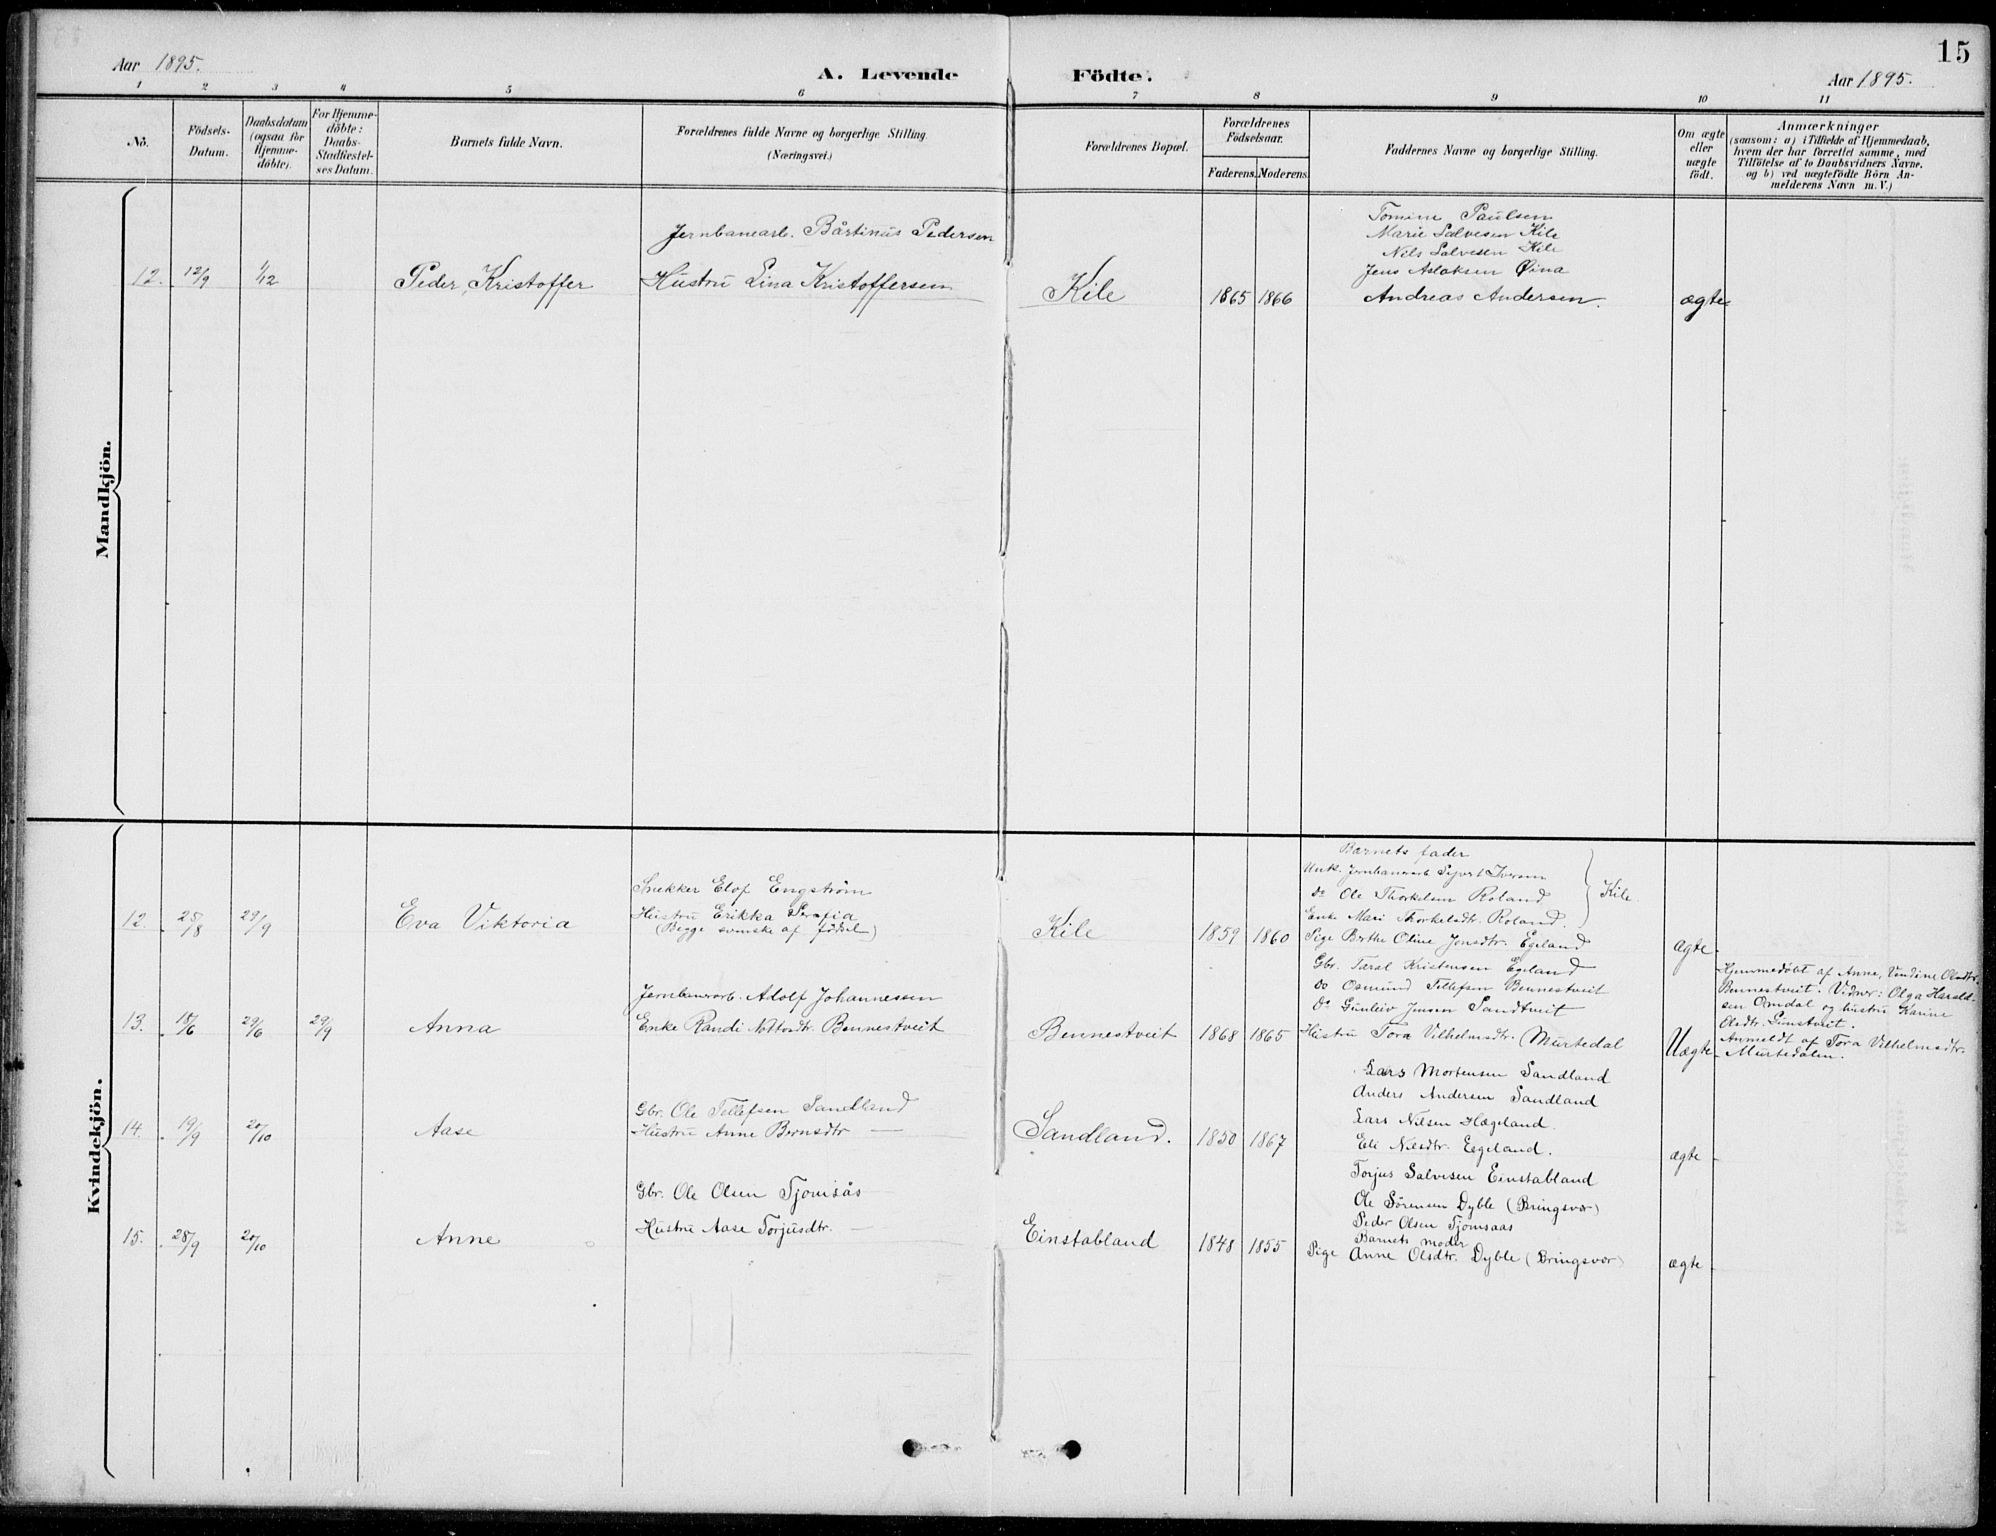 15
Aar 1895.
A. Levende Födte.
Aar 1895.
1 2 3 4 5 6 7 8 9 10 11
No.
Födsels-Datum.
Daabsdatum (ogsaa for Hjemmedöbte).
For Hjemmedöbte: Daabs-Stadfæstelses Datum.
Barnets fulde Navn.
Forældrenes fulde Navne og borgerlige Stilling
(Næringsvei.)
Forældrenes Bopæl.
Forældrenes Födselsaar.
Faderens. Moderens.
Faddernes Navne og borgerlige Stilling.
Om ægte eller uægte födt.
Anmærkninger
(saasom: a) i Tilfælde af Hjemmedaab,
hvem der har forrettet samme, med
Tilföielse af to Daabsvidners Navne.
og b) ved uægtefödte Börn An-
melderens Navn m. V.)
Mandkjön.
12. 12/9 1/12 Peder Kristoffer
Jernbanearb. Bårtinus Pedersen
Hustru Lina Kristoffersen
Kile 1865 1866
Tomine Paulsen
Marie Salvesen Kile
Nils Salvesen Kile
Jens Aslaksen Øina
Andreas Andersen.
ægte
Kvindekjön.
12. 25/8 29/9 Eva Viktoria
Snekker Elof Engström
Hustru Erikka Serafia
(Begge svenske af födsel)
Kile 1859 1860
Barnets fader
Unk. Jernbanearb Sjvert Iversen
do Ole Thorkelsen Roland
Enke Mari Thorkelsdtr. Roland.
Kile.
Pige Berthe Oline Jonsdtr. Egeland
ægte
13. 15/6 29/6 29/9 Anna
Jernbanearb. Adolf Johannessen
Enke Randi Nottvdtr. Bennestveit
Bennestveit 1868 1865
Gbr. Taral Kristensen Egeland
do Osmund Tellefsen Bennestveit
do Gunleiv Jensen Sandtveit
Hustru Tora Vilhelmsdtr. Murtedal
Uægte
Hjemmedöbt af Anne, Undine Olsdtr.
Bennestveit. Vidner: Olga Harald-
sen Omdal og hustru Karine
Olsdtr. Gunstveit.
Anmeldt af Tora Vilhelmsdtr.
Murtedalen.
14. 19/9 20/10 Aase
Gbr. Ole Tellefsen Sandland
Hustru Anne Bernsdtr —
Sandland. 1850 1867
Lars Mortensen Sandland
Anders Andersen Sandland
Lars Nilsen Hægeland.
Eli Nilsdtr. Egeland.
ægte
15. 28/9 20/10 Anne
Gbr. Ole Olsen Tjomsås
Hustru Aase Torjusdtr. —
Einstabland 1848 1855
Torjus Salvesen Einstabland
Ole Sörensen Dyble (Bringsvor)
Peder Olsen Tjomsaas
Barnets moder
Pige Anne Olsdtr. Dyble (Bringsvor)
ægte